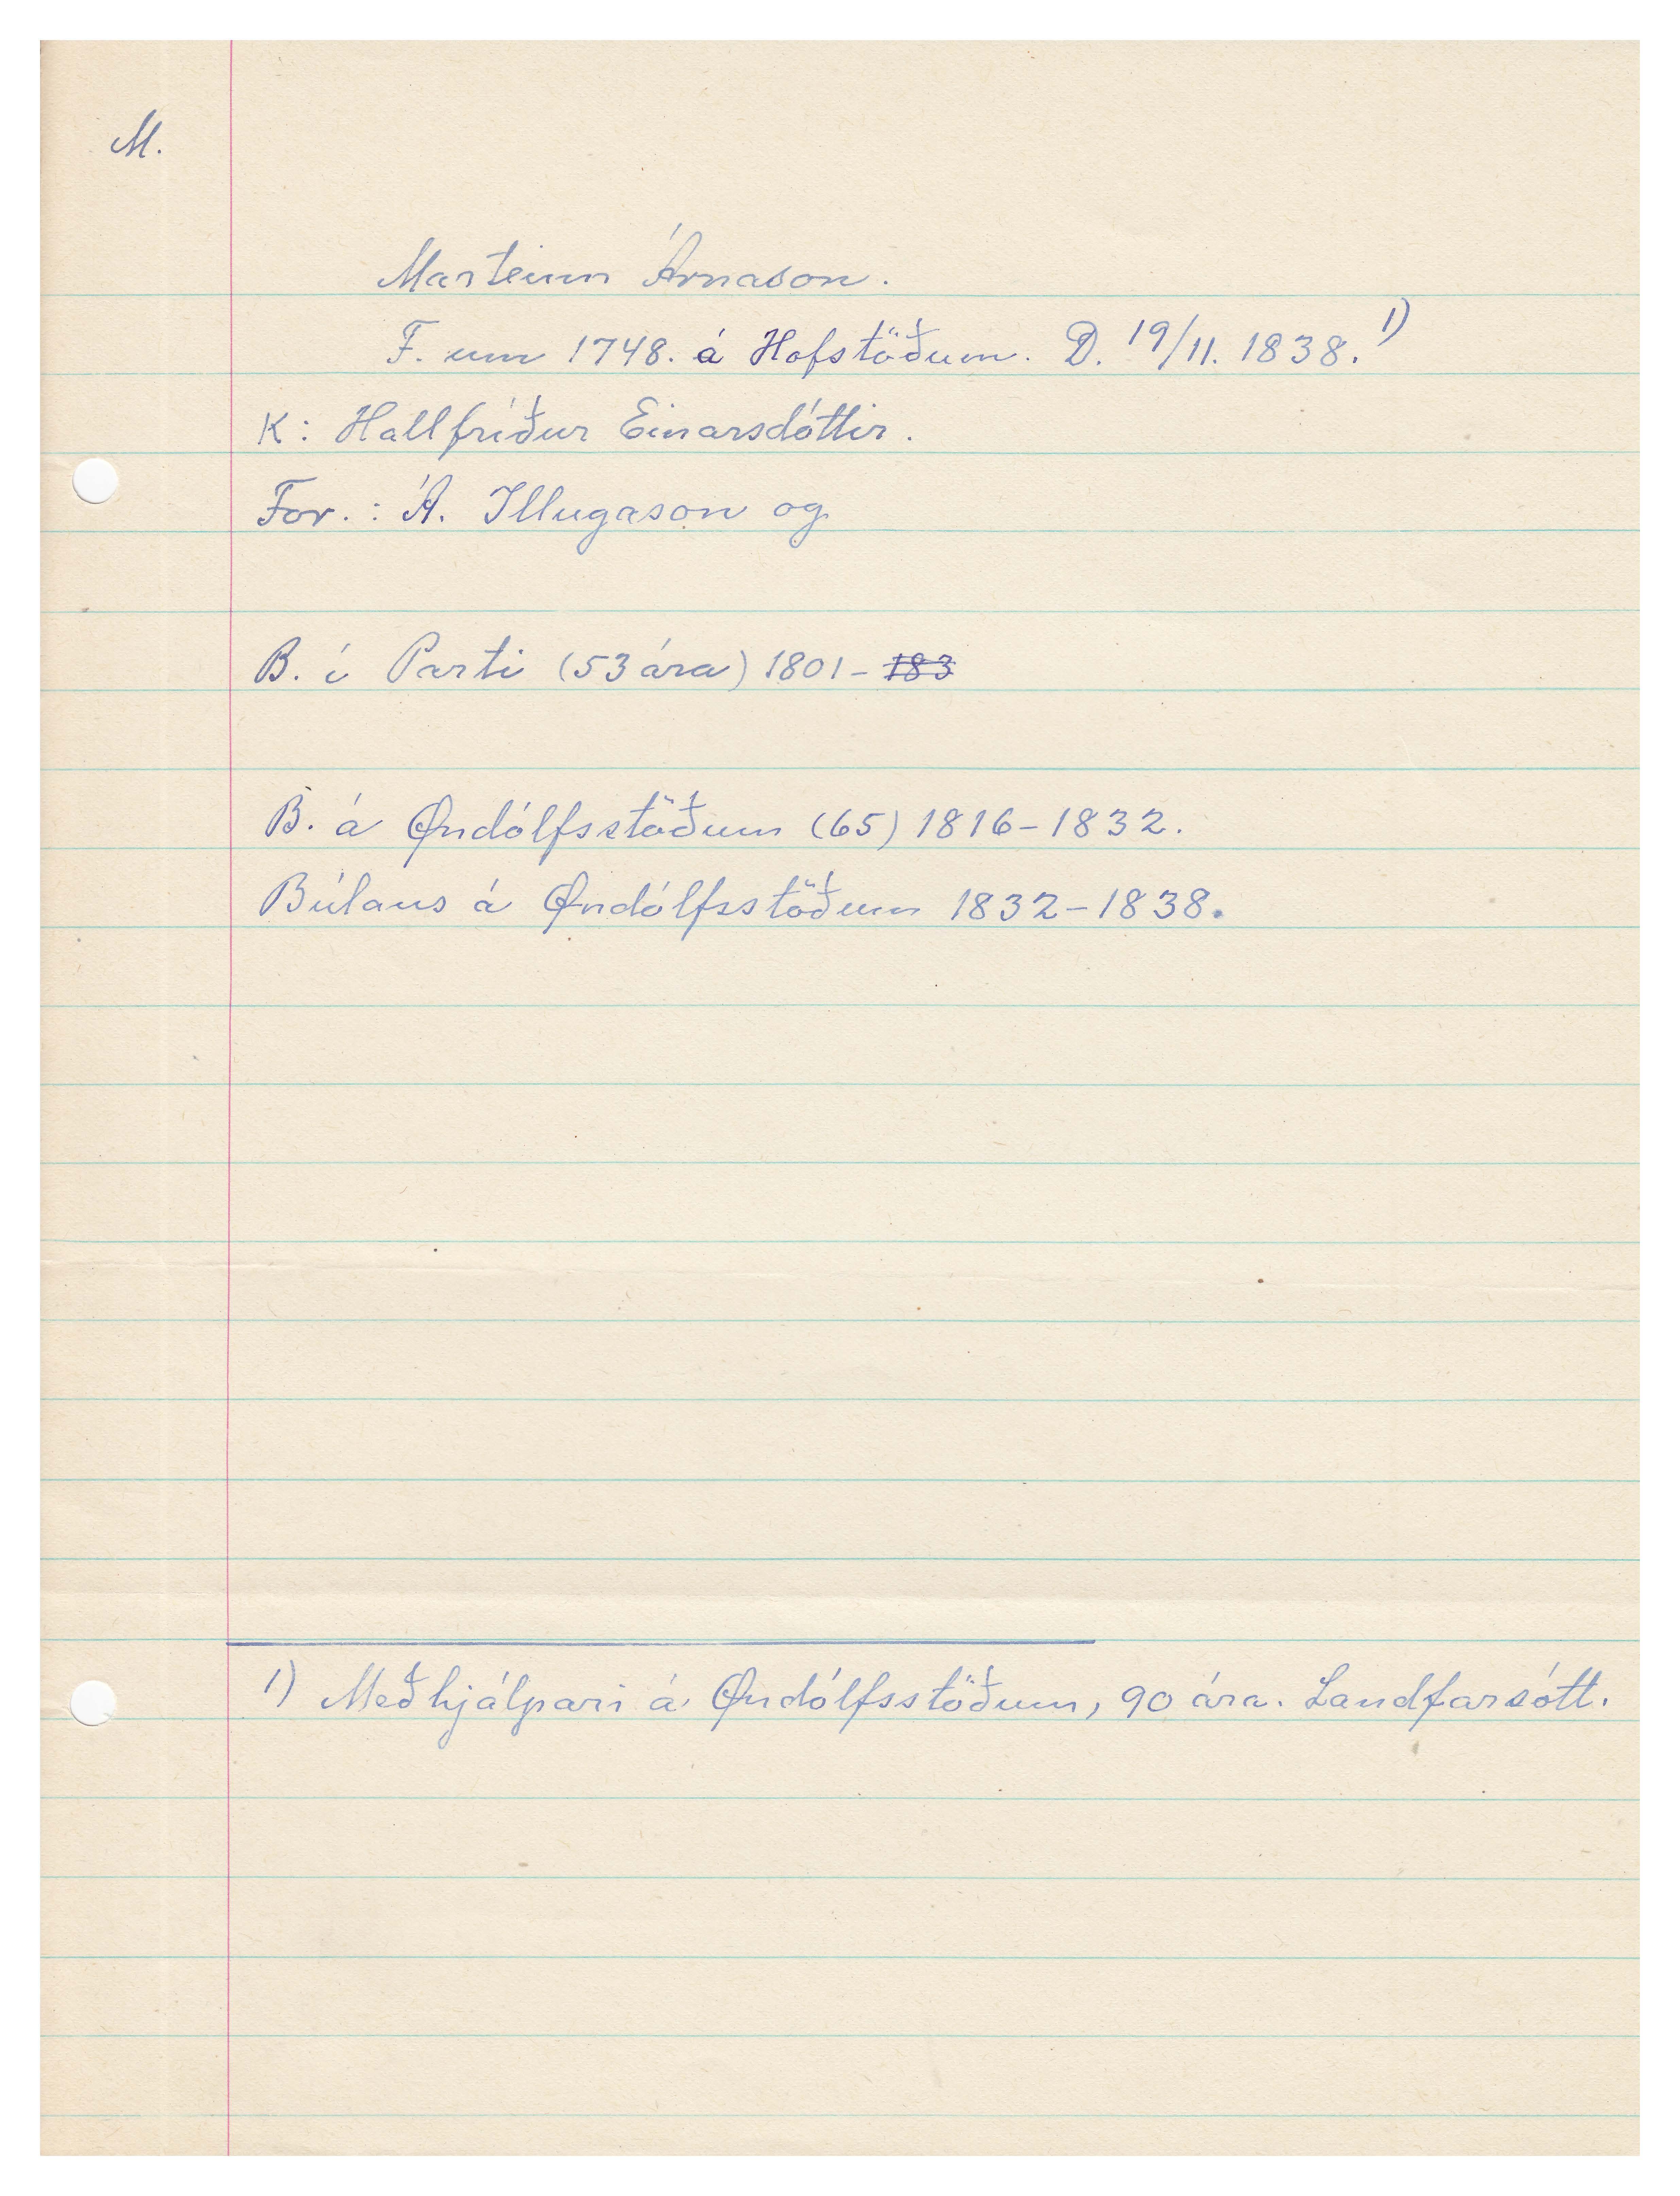 M.
Marteinn Árnason.
F. um 1748. á Hofstöðum. D. 19/11. 1838. 1)
K: Hallfríður Einarsdóttir.
For.: Á. Illugason og
B. í Parti (53 ára) 1801- 183
B. á Øndólfsstöðum (65) 1816-1832.
Búlaus á Øndólfsstöðum 1832-1838.
1) Meðhjálpari á Øndólfsstöðum, 90 ára. Landfarsótt.